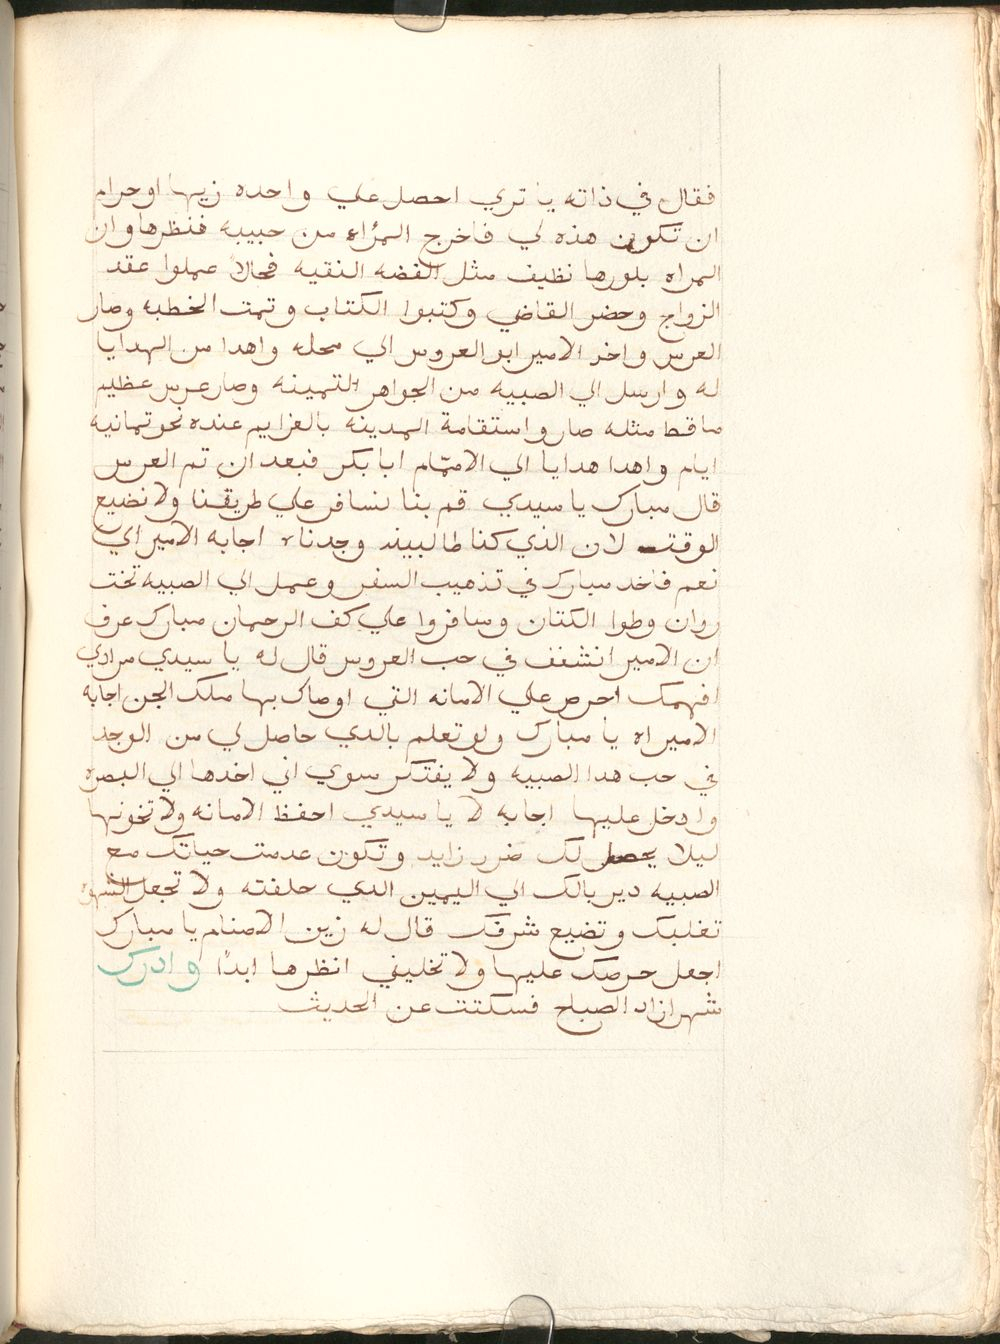 فقال في ذاته يا تري احصل علي واحده زيها او حرام
ان تكون هذه لي فاخرج المرٱاه من حبيبه فنظرها وان
المراه بلورها نظيف مثل الفضه النقيه فحالاً عملوا عقد
الزواج وحضر القاضي وكتبوا الكتاب وتمت الخطبه وصار
العرس واخر الامير ابو العروس الي محله واهدا من الهدايا
له وارسل الي الصبيه من الجواهر التمينه وصار عرس عظيم
ما قط مثله صار واستقامة المدينه بالعزايم عنده نحو تمانية
ايام واهدا هدايا الي الامتمام ابا بكر فبعد ان تم العرس
قال مبارك يا سيدي قم بنا نسافر علي طريقنا ولا نضيع
الوقت لان الذي كنا طالبين وجدناه اجابه الامير اي
نعم فاخد مبارك في تذهيب السفر وعمل الي الصبيه تخت
روان وطوا الكتان وسافروا علي كف الرحمان مبارك عرف
ان الامير انشغف في حب العروس قال له يا سيدي مرادي
افهمك احرص علي الامانه التي اوصاك بها ملك الجن اجابه
الامير اه يا مبارك ولو تعلم بالدي حاصل لي من الوجد
في حب هدا الصبيه ولا يفتكر سوي اني اخدها الي البصره
وادخل عليها اجابه لا يا سيدي احفظ الامانه ولا تخونها
ليلا يحصل لك ضرر زايد وتكون عدمت حياتك مع
الصبيه دير بالك الي اليمين الدي حلفته ولا تجعل الشهوه
تغلبك وتضيع شرفك قال له زين الاصنام يا مبارك
اجعل حرصك عليها ولا تخليني انظرها ابدًا وادرك
شهرازاد الصباح فسكتت عن الحديث